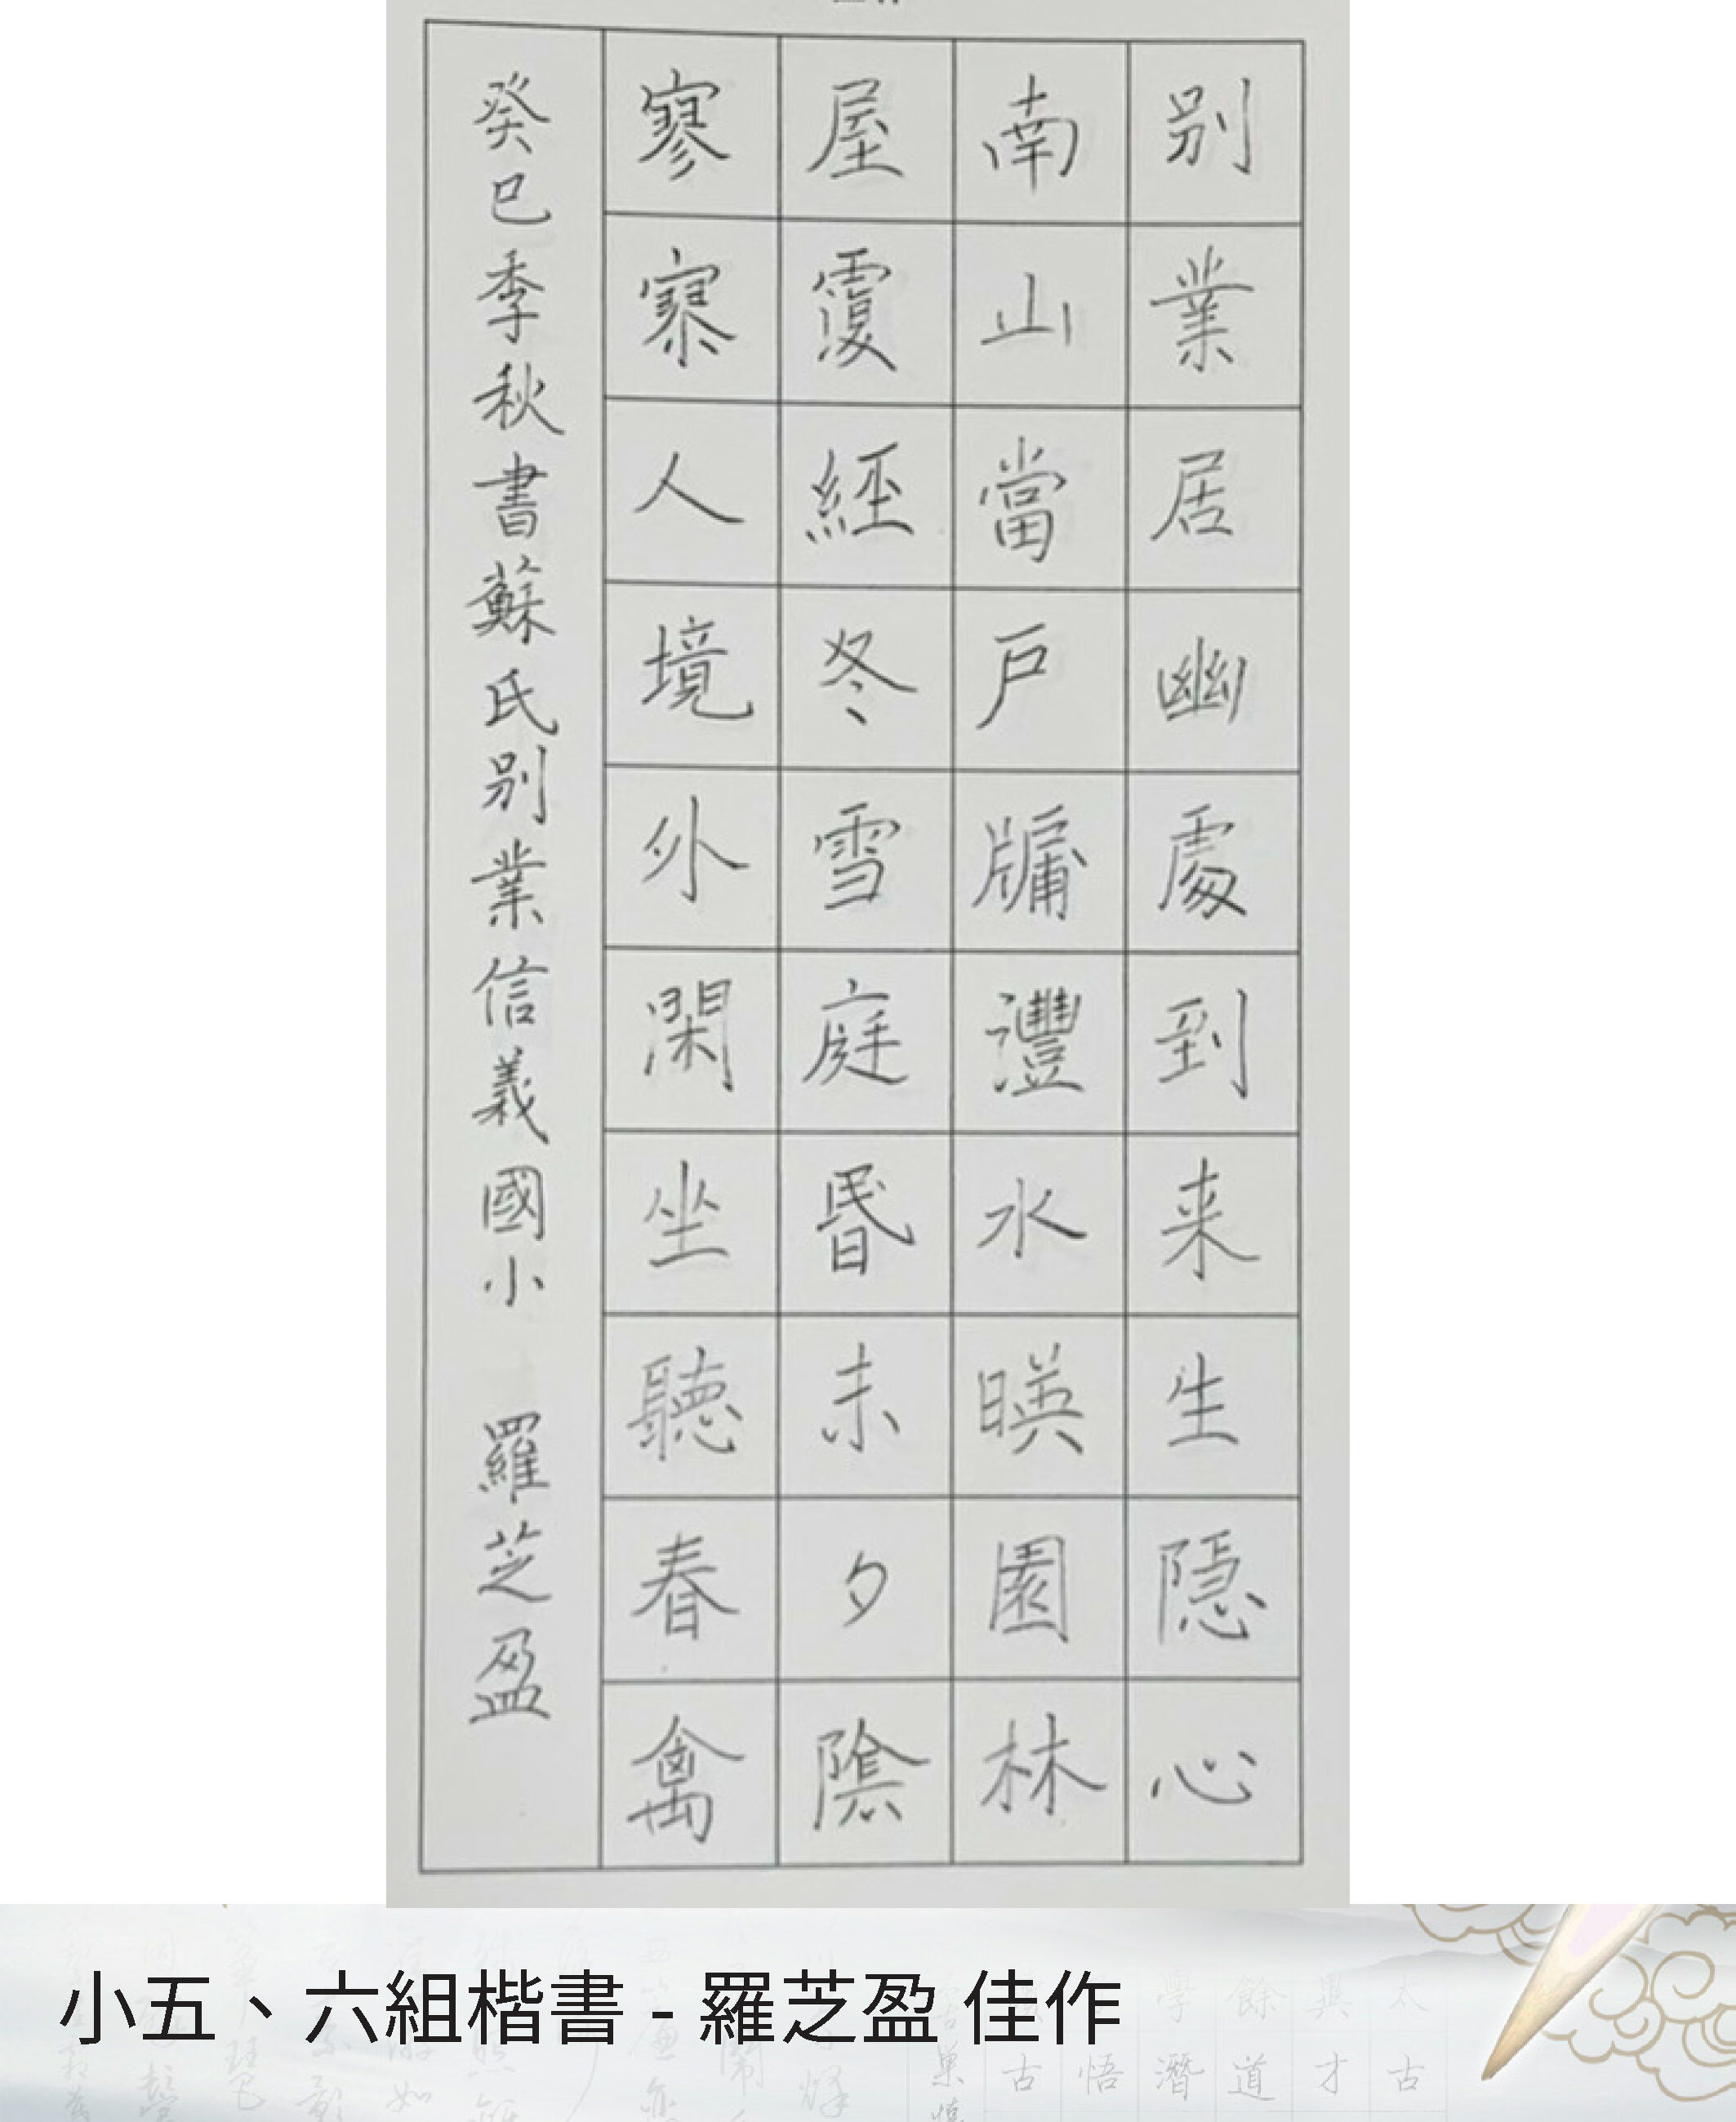 别業居幽處到来生隱心
南山當戶牖灃水暎園林
屋覆經冬雪庭昏未夕陰
寥寥人境外閑坐聽春禽
癸巳季秋書蘇氏别業信義國小 羅芝盈
小五、六組楷書 - 羅芝盈 佳作